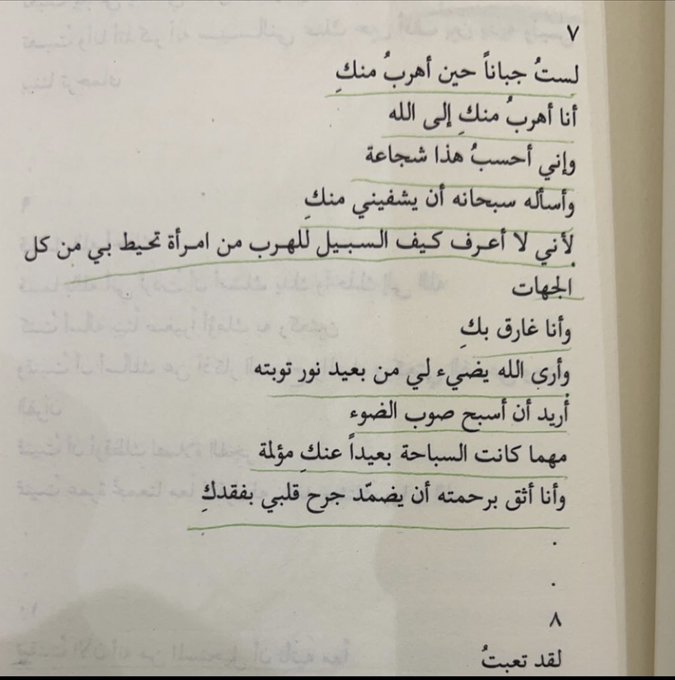 ٧
لستُ جباناً حين أهربُ منكِ
أنا أهربُ منكِ إلى الله
وإني أحسبُ هذا شجاعة
وأسأله سبحانه أن يشفيني منكِ
لأني لا أعرف كيف السبيل للهرب من امرأة تحيط بي من كل
الجهات
وأنا غارق بكِ
وأرى الله يضيء لي من بعيد نور توبته
أريد أن أسبح صوب الضوء
مهما كانت السباحة بعيداً عنكِ مؤلمة
وأنا أثق برحمته أن يضمّد جرح قلبي بفقدكِ
.
.
٨
لقد تعبتُ